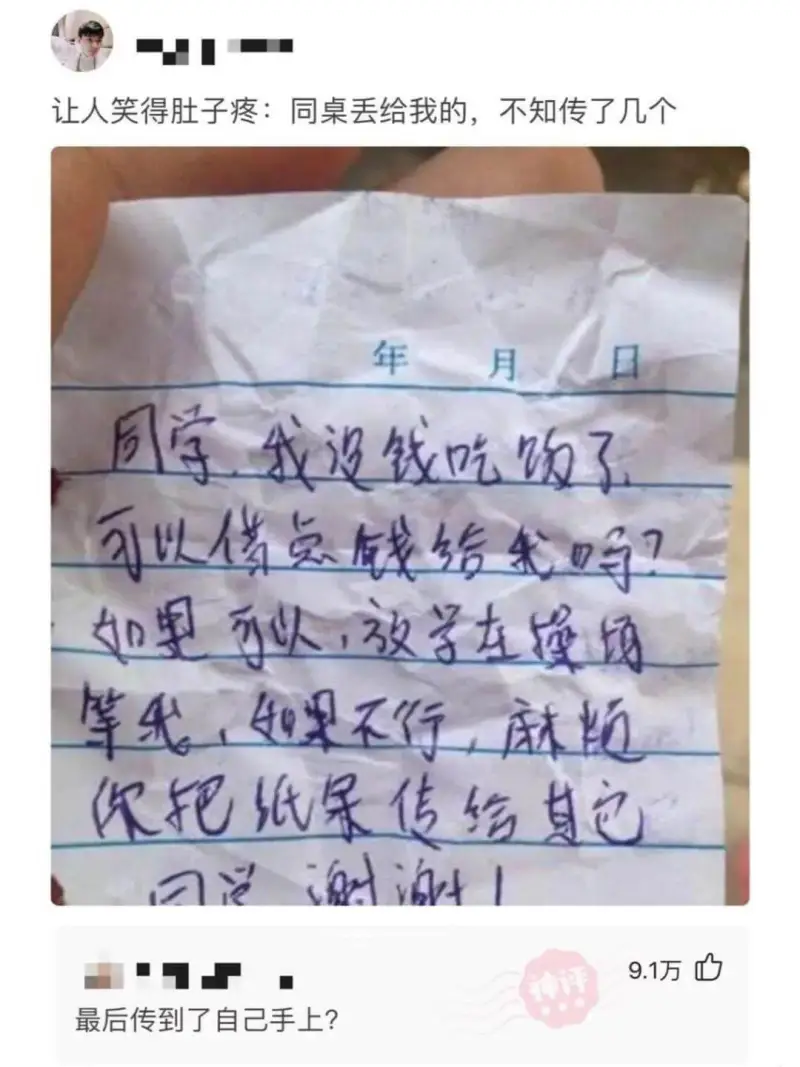 让人笑得肚子疼：同桌丢给我的，不知传了几个
年 月 日
同学，我没钱吃饭了，
可以借点钱给我吗？
如果可以，放学在操场
等我，如果不行，麻烦
你把纸条传给其它
同学，谢谢！
神评
9.1万
最后传到了自己手上？